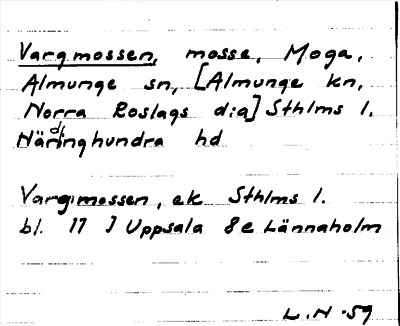 Vargmossen, mosse, Moga,
Almunge sn, [Almunge kn,
Norra Roslags d:a] Sthlms l.
Närdinghundra hd
Vargmossen, ek Sthlms l.
bl. 17 J Uppsala 8e Lännaholm
L.N -59